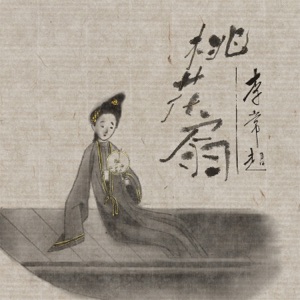 桃花扇
李常超